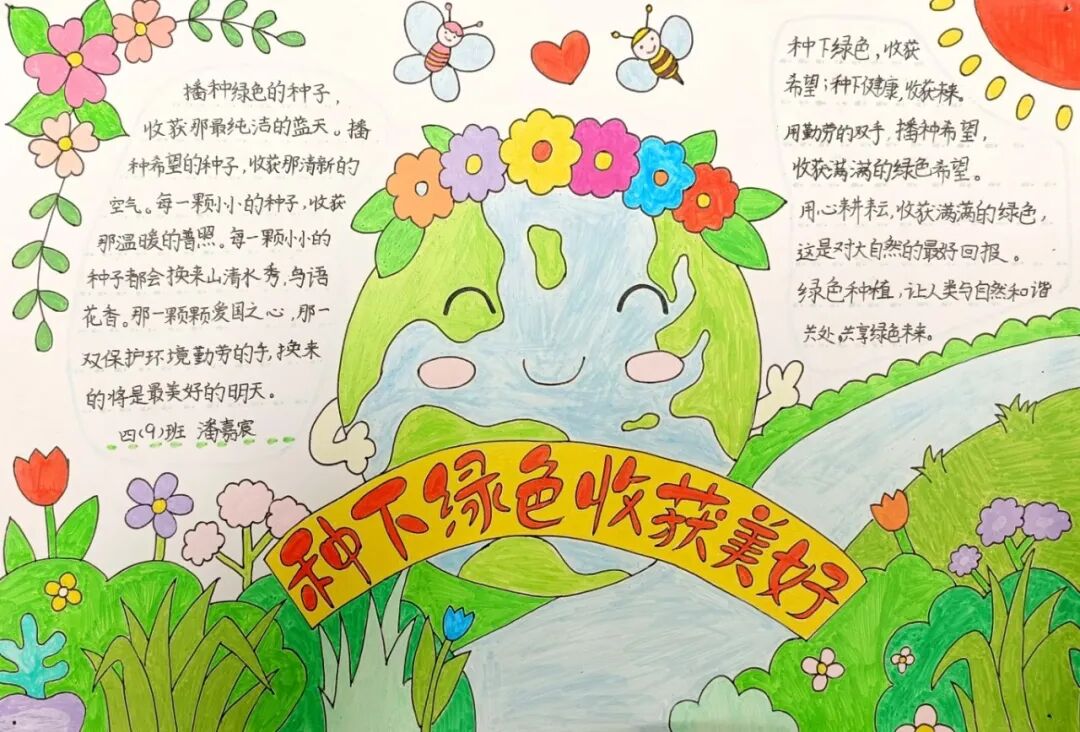 播种绿色的种子，
收获那最纯洁的蓝天。播
种希望的种子，收获那清新的
空气。每一颗小小的种子，收获
那温暖的普照。每一颗小小的
种子都会换来山清水秀，鸟语
花香。那一颗颗爱国之心，那一
双保护环境勤劳的手，换来
的将是最美好的明天。
四（9）班 潘嘉宸
种下绿色，收获
希望；种下健康，收获未来。
用勤劳的双手，播种希望，
收获满满的绿色希望。
用心耕耘，收获满满的绿色，
这是对大自然的最好回报。
绿色种植，让人类与自然和谐
共处。共享绿色未来。
种下绿色收获美好